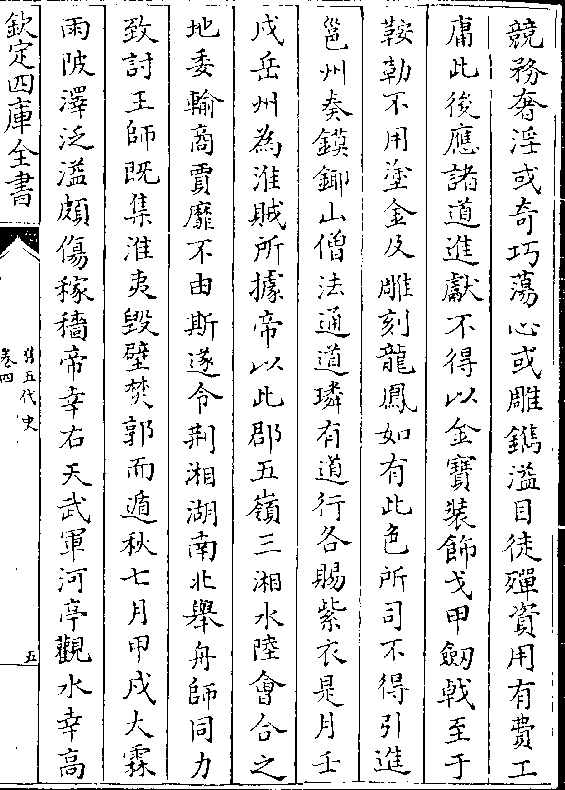 競務奢淫或奇巧蕩心或雕鐫溢目徒殫資用有費工
庸此後應諸道進獻不得以金寶裝飾戈甲劒戟至于
鞍勒不用塗金及雕刻龍鳳如有此色所司不得引進
邕州奏鏌鎁山僧法通道璘有道行各賜紫衣是月壬
戌岳州為淮賊所據帝以此郡五嶺三湘水陸會合之
地委輸商賈靡不由斯遂令荆湘湖南北舉舟師同力
致討王師既集淮夷毀壁焚郭而遁秋七月甲戌大霖
雨陂澤泛溢頗傷稼穡帝幸右天武軍河亭觀水幸高
欽定四庫全書
舊五代史
卷四
五